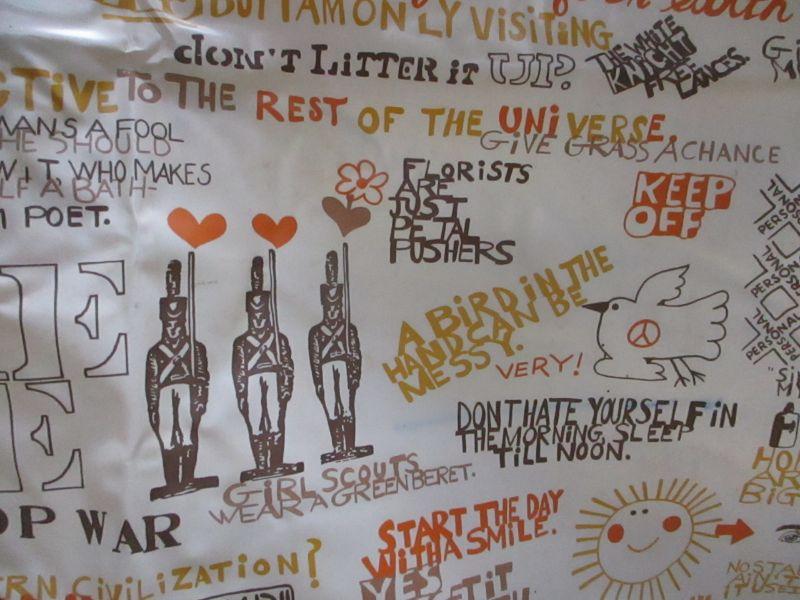 BUT I AM ONLY VISITING
DON'T LITTER IT
UJI?
THE WHITE
KNIGHT
FREE
LANCES.
TO THE REST OF THE UNIVERSE.
GIVE GRASS A CHANCE
MANS A FOOL
HE SHOULD
WHO MAKES
LF A BATH-
POET.
FLORISTS
ARE
JUST
PETAL
PUSHERS
KEEP
OFF.
PERSONAL
PERSONAL
PERSONAL
A BIRD IN THE
HAND CAN BE
MESSY.
VERY!
DONT HATE YOURSELF IN
THE MORNING SLEEP
TILL NOON.
GIRL SCOUTS
WEAR A GREEN BERET.
OP WAR
START THE DAY
WITH A SMILE.
YES
ERN CIVILIZATION?
HO
AR
BIG
NOSTA
AIN'T
IT USE